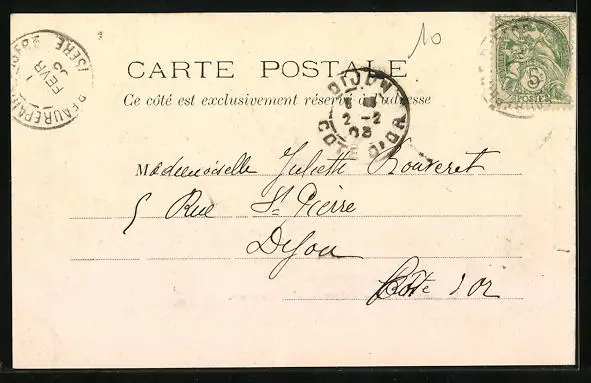 10
CARTE POSTALE
Ce côté est exclusivement réservé à l'adresse
BEAUREPAIRE ISERE
1 FEVR 03
DIJON
2-2
03
COTE D'OR
5
POSTES
Mademoiselle Juliette Rouveret
5 Rue St Pierre
Dijon
Côte d'or